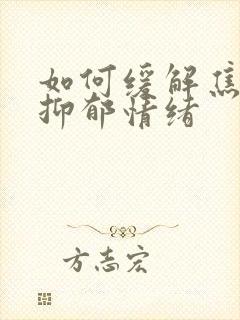 如何缓解焦
抑郁情绪
方志宏